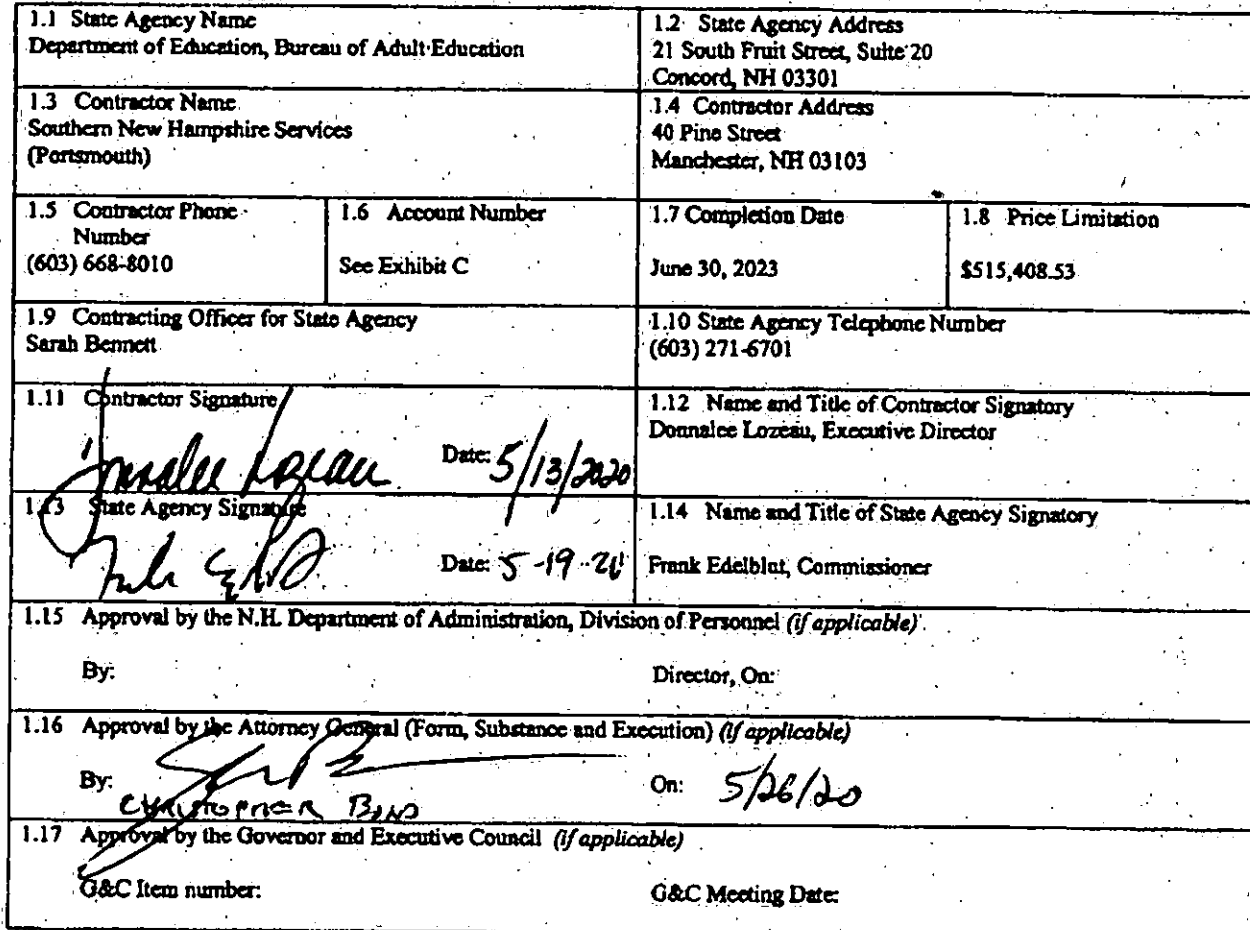 1.1 State Agency Name
Department of Education, Bureau of Adult Education
1.2 State Agency Address
21 South Fruit Street, Suite 20
Concord, NH 03301
1.3 Contractor Name
Southern New Hampshire Services
(Portsmouth)
1.4 Contractor Address
40 Pine Street
Manchester, NH 03103
1.5 Contractor Phone
Number
(603) 668-8010
1.6 Account Number
See Exhibit C
1.7 Completion Date
June 30, 2023
1.8 Price Limitation
$515,408.53
1.9 Contracting Officer for State Agency
Sarah Bennett
1.10 State Agency Telephone Number
(603) 271-6701
1.11 Contractor Signature
Donnalee Lozeau Date: 5/13/2020
1.12 Name and Title of Contractor Signatory
Donnalee Lozeau, Executive Director
1.13 State Agency Signature
Date: 5-19-20
1.14 Name and Title of State Agency Signatory
Frank Edelblut, Commissioner
1.15 Approval by the N.H. Department of Administration, Division of Personnel (if applicable)
By: Director, On:
1.16 Approval by the Attorney General (Form, Substance and Execution) (if applicable)
By: On: 5/26/20
CHRISTOPHER BOND
1.17 Approval by the Governor and Executive Council (if applicable)
G&C Item number: G&C Meeting Date: